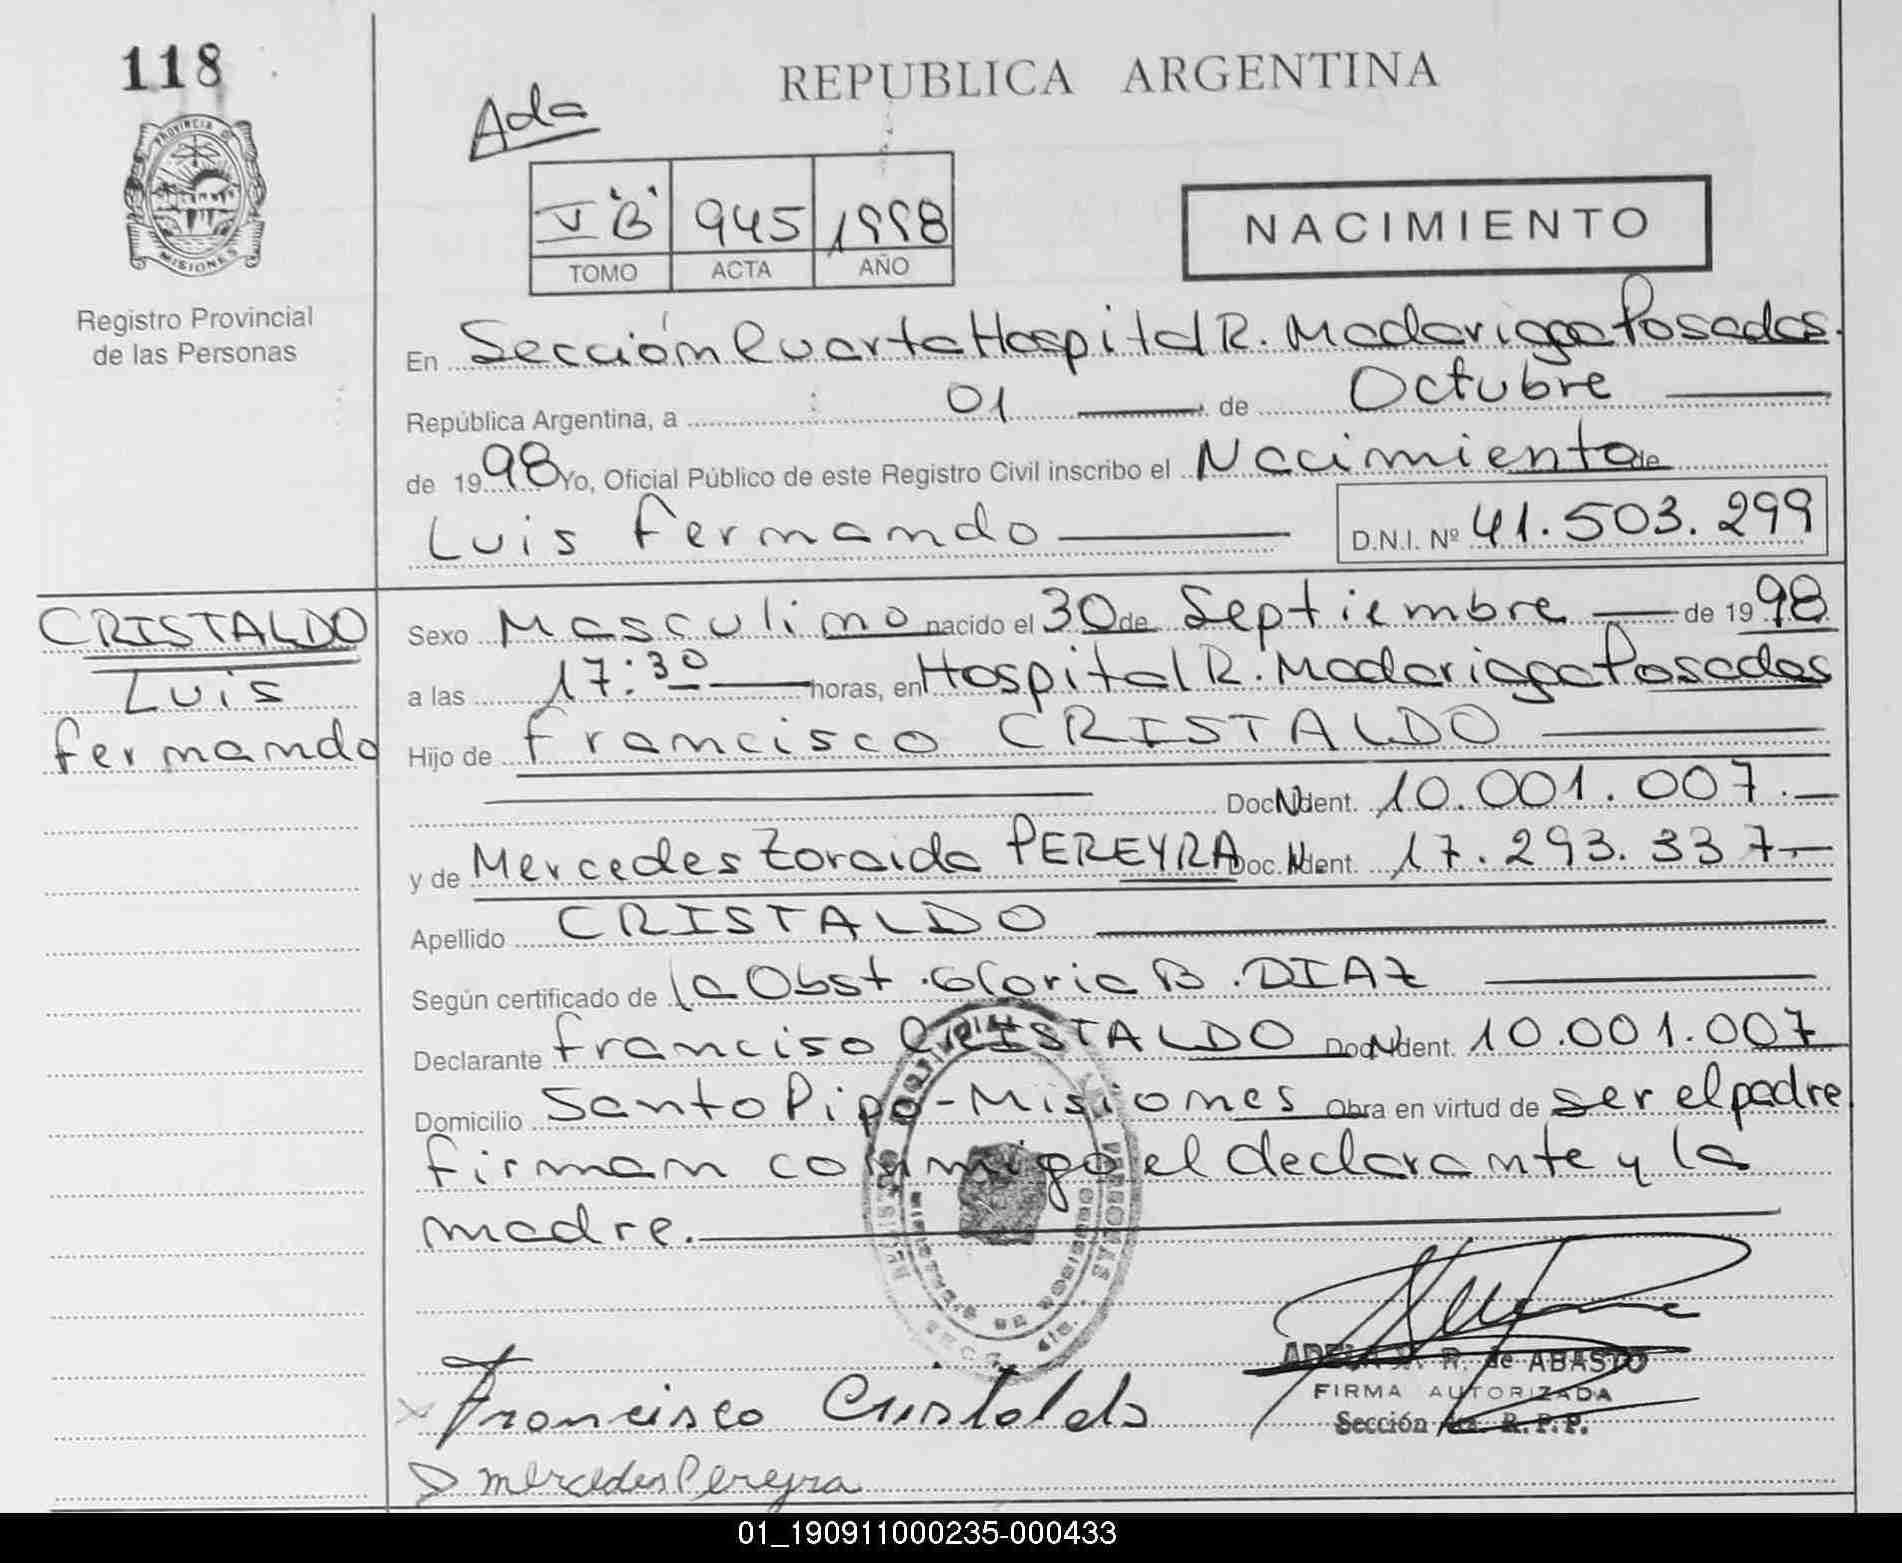 118
REPUBLICA ARGENTINA
Ada
PROVINCIA D
MISIONES
V "B" 945 1998
TOMO ACTA AÑO
NACIMIENTO
Registro Provincial
de las Personas
En Sección Cuarta Hospital R. Madariaga Posadas.
República Argentina, a 01 de Octubre
de 1998 Yo, Oficial Público de este Registro Civil inscribo el Nacimiento de
Luis Fernando D.N.I. Nº 41.503.299
CRISTALDO
Luis
Fernando
Sexo Masculino nacido el 30 de Septiembre de 1998
a las 17:30 horas, en Hospital R. Madariaga Posadas
Hijo de Francisco CRISTALDO
Doc. Ident. 10.001.007.-
y de Mercedes Zoraida PEREYRA Doc. Ident. 17.293.337-
Apellido CRISTALDO
Según certificado de la Obst. Gloria B. DIAZ
Declarante Franciso CRISTALDO Doc. Ident. 10.001.007
Domicilio Santo Pipo - Misiones Obra en virtud de ser el padre
firman conmigo el declarante y la
madre.
ADELA R. de ABASTO
FIRMA AUTORIZADA
Sección 4ta. R.P.P.
Francisco Cristaldo
Mercedes Pereyra
01_190911000235-000433